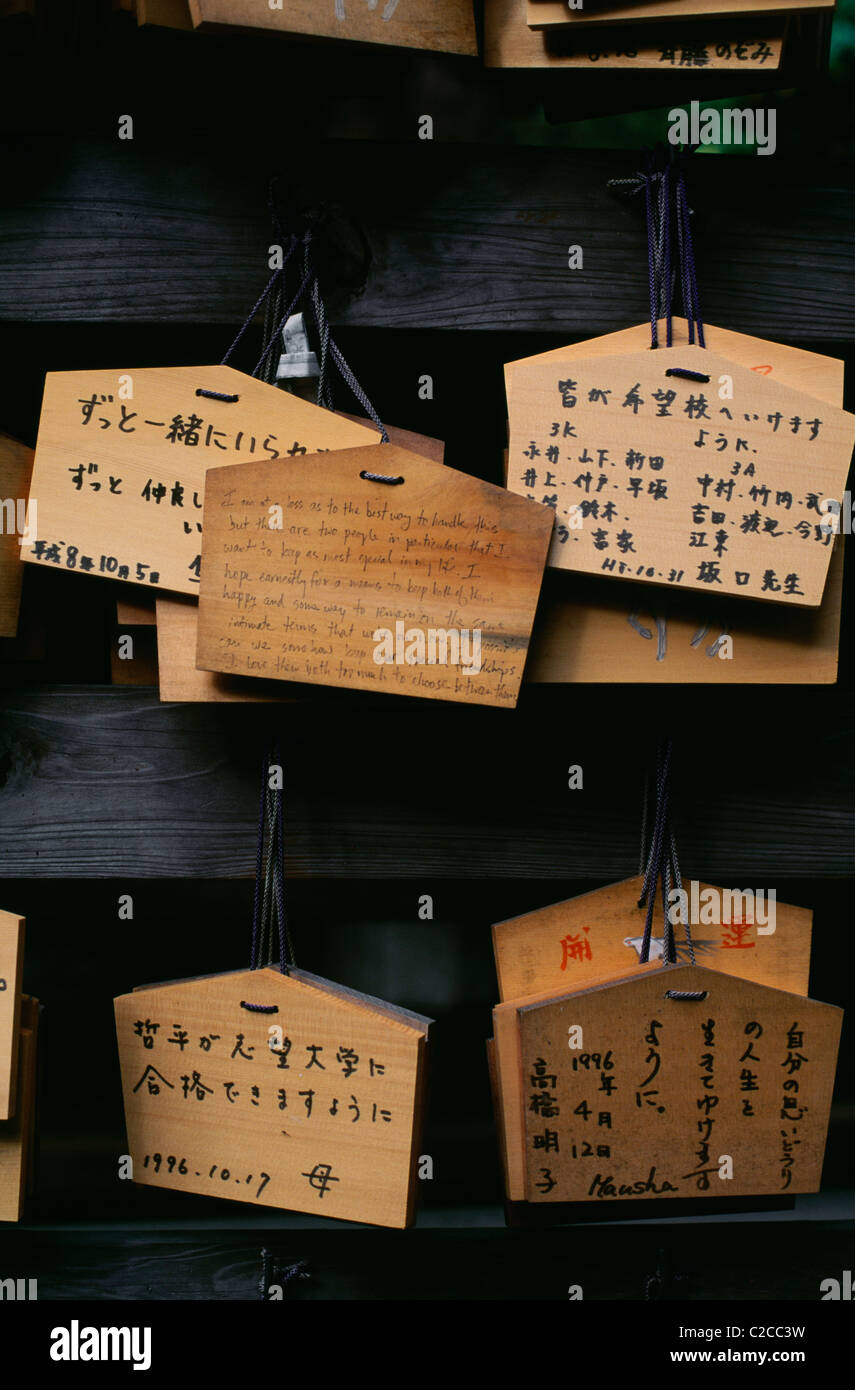 斉藤 のぞみ
ずっと一緒にいられ
ずっと 仲良し
い
平成8年10月5
I am at a loss as to the best way to handle this
but there are two people in particular that I
want to keep as most special in my life. I
hope earnestly for a means to keep both of them
happy and some way to remain on the same
intimate terms that we
can we somehow keep our friendships.
I love them both too much to choose between them
皆が希望校へいけます
ように。
3K
永井.山下.新田
井上.竹戸.早坂
鈴木.
吉家
3A
中村.竹内.武
吉田.渡辺.今
江東
H8.10.31 坂口先生
哲平が志望大学に
合格できますように
1996.10.17 母
開 運
自分の思いどうり
の人生を
生きてゆけます
ように。
1996年4月12日
高橋明子
alamy
Image ID: C2CC3W
www.alamy.com